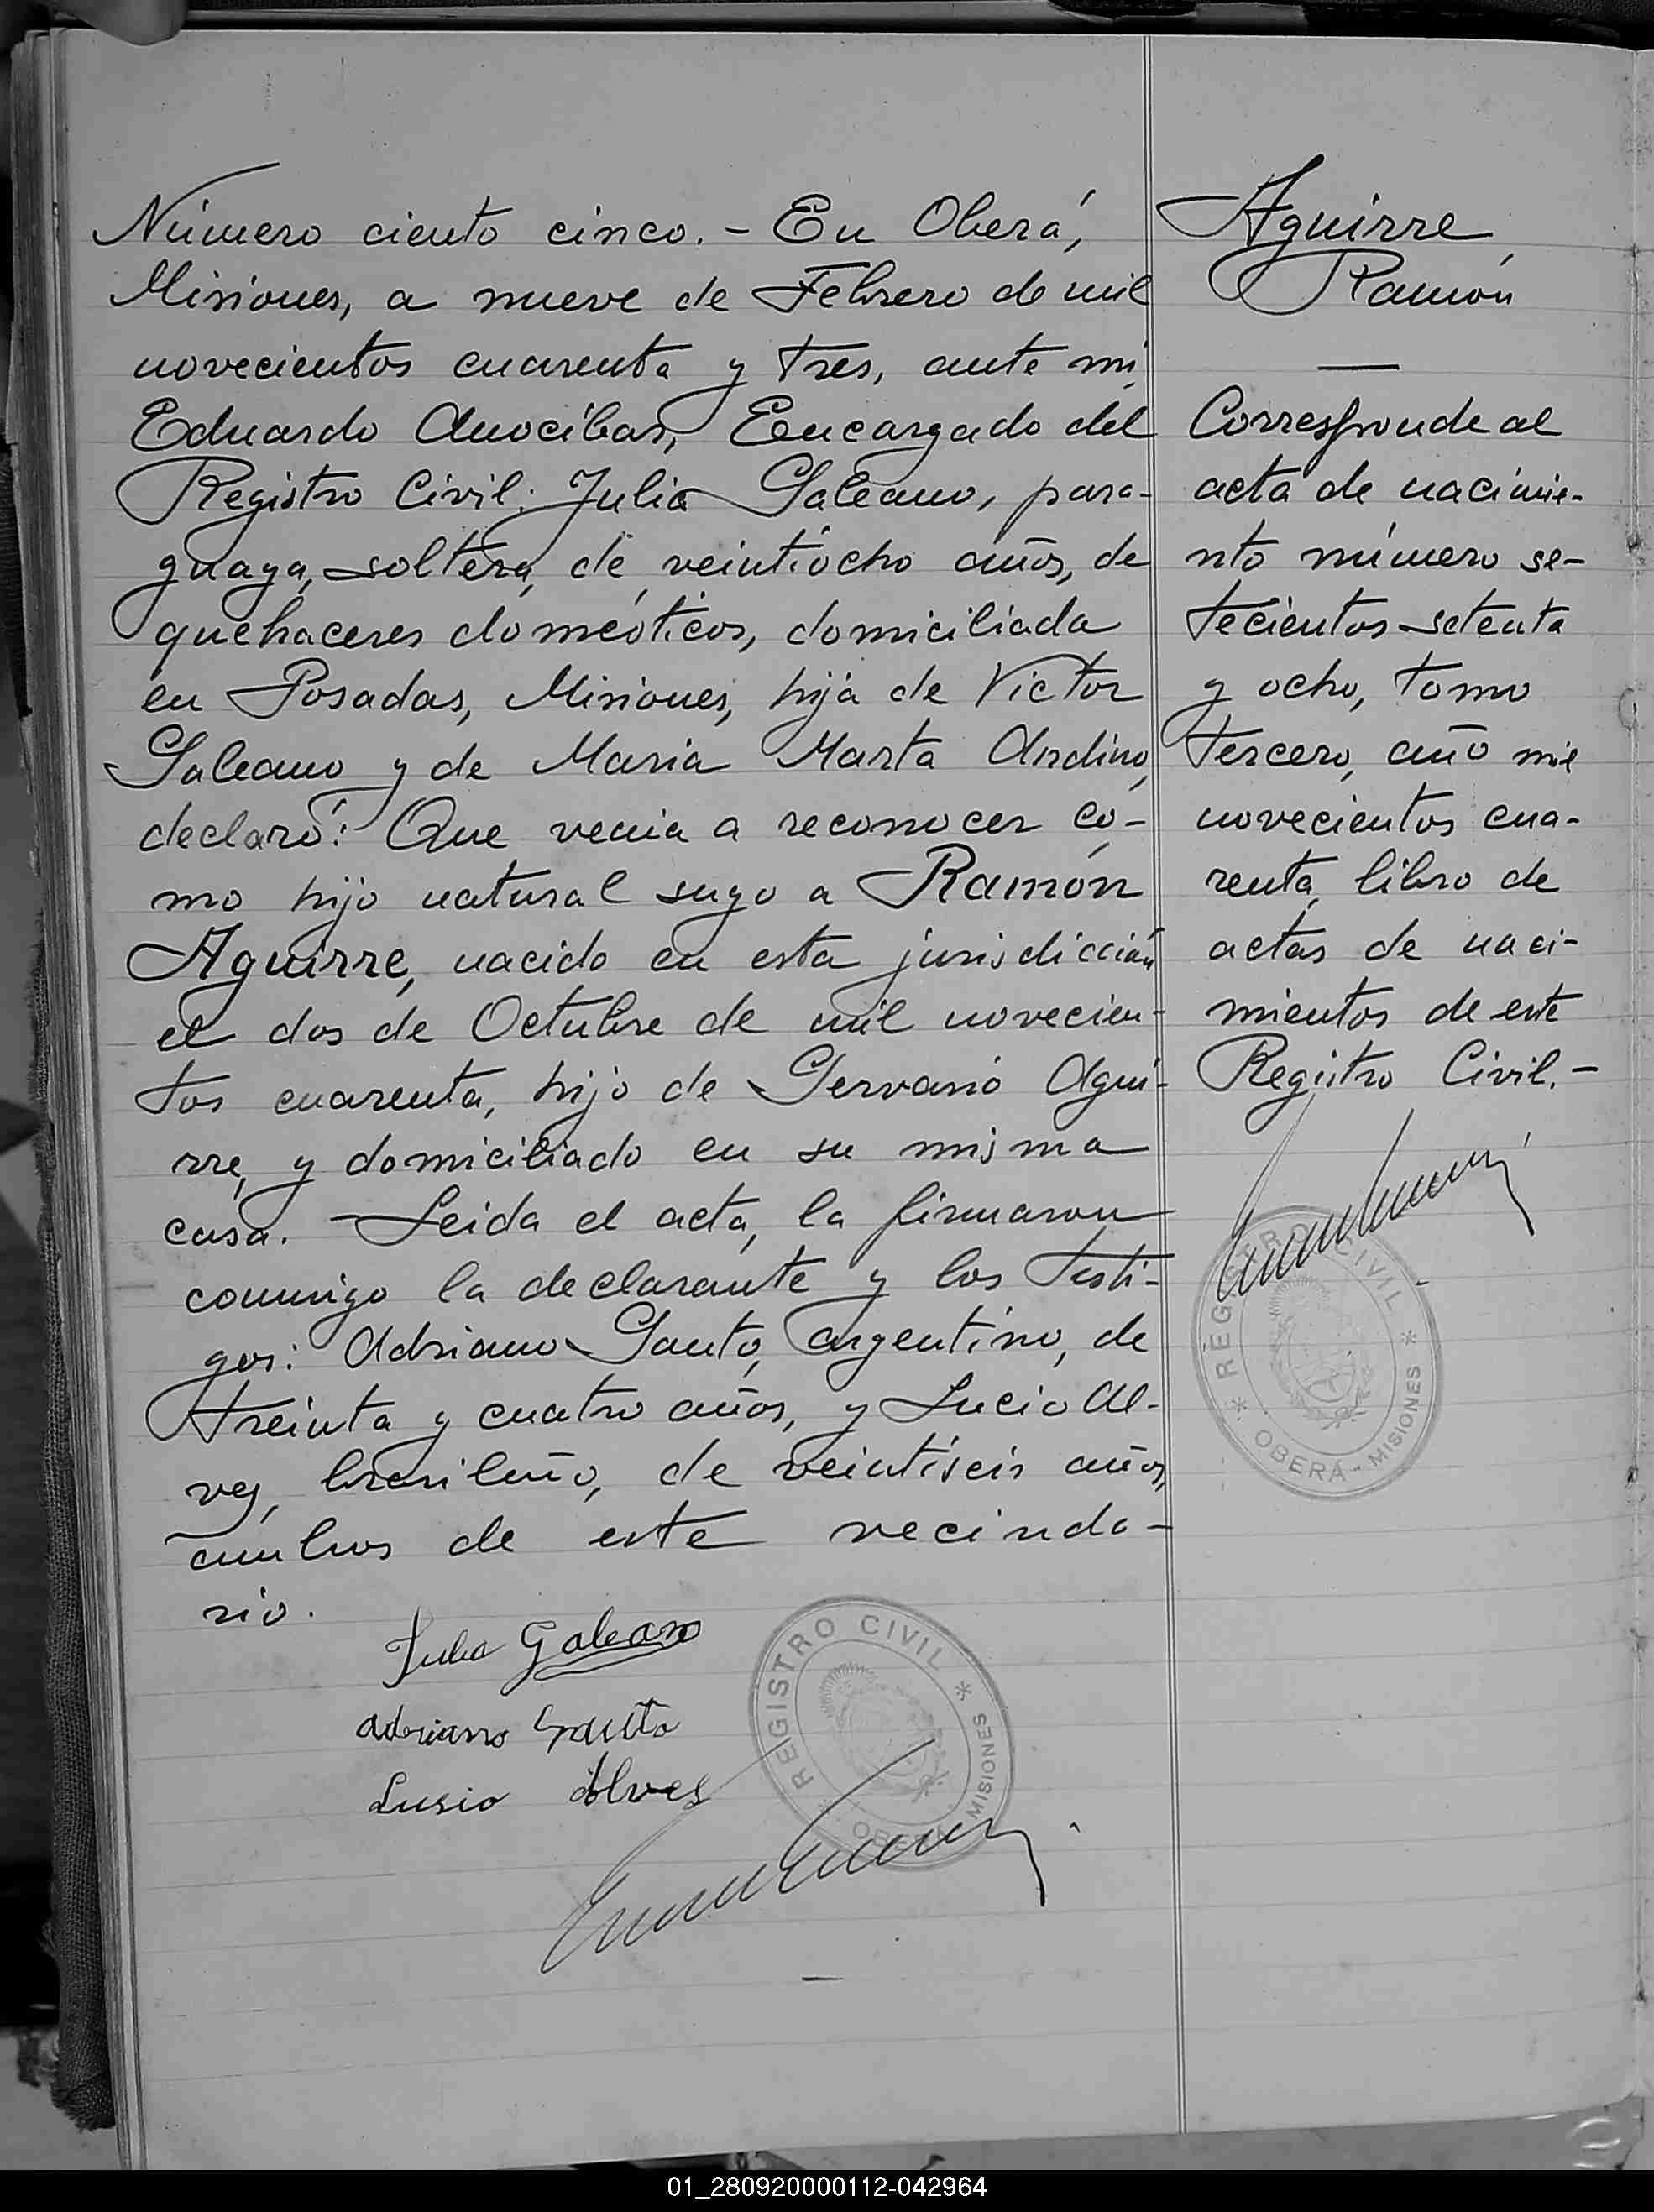 Número ciento cinco. - En Oberá,
Misiones, a nueve de Febrero de mil
novecientos cuarenta y tres, ante mi,
Eduardo Anocibar, Encargado del
Registro Civil: Julia Galeano, para-
guaya, soltera, de veintiocho años, de
quehaceres domésticos, domiciliada
en Posadas, Misiones, hija de Victor
Galeano y de Maria Marta Andino,
declaró: Que venia a reconocer co-
mo hijo natural suyo a Ramón
Aguirre, nacido en esta jurisdicción
el dos de Octubre de mil novecien-
tos cuarenta, hijo de Gervasio Agui-
rre, y domiciliado en su misma
casa. Leida el acta, la firmaron
conmigo la declarante y los testi-
gos: Adriano Gauto, argentino, de
treinta y cuatro años, y Lucio Al-
ves, brasileño, de veintiseis años,
ambos de este vecinda-
rio.
Julia Galeano
Adriano Gauto
Lusio Alves
REGISTRO CIVIL
OBERÁ - MISIONES
Aguirre,
Ramón
Corresponde al
acta de nacimie-
nto número se-
tecientos setenta
y ocho, tomo
tercero, año mil
novecientos cua-
renta, libro de
actas de naci-
mientos de este
Registro Civil. -
REGISTRO CIVIL
OBERÁ - MISIONES
01_280920000112-042964